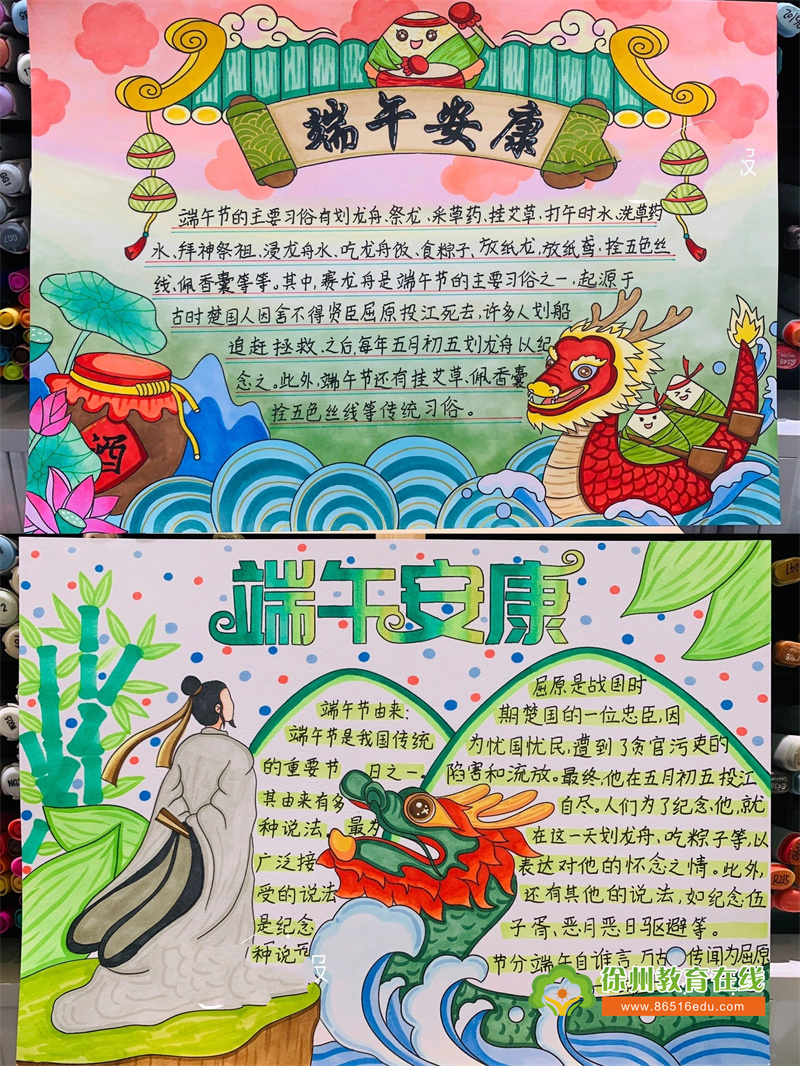 端午安康
端午节的主要习俗有划龙舟、祭龙、采草药、挂艾草、打午时水、洗草药
水、拜神祭祖、浸龙舟水、吃龙舟饭、食粽子、放纸龙、放纸鸢、拴五色丝
线、佩香囊等等。其中，赛龙舟是端午节的主要习俗之一，起源于
古时楚国人因舍不得贤臣屈原投江死去，许多人划船
追赶拯救。之后，每年五月初五划龙舟以纪
念之。此外，端午节还有挂艾草、佩香囊
拴五色丝线等传统习俗。
酒
端午安康
端午节由来：
端午节是我国传统
的重要节日之一。
其由来有多
种说法，最为
广泛接
受的说法
是纪念
种说
屈原是战国时
期楚国的一位忠臣，因
为忧国忧民，遭到了贪官污吏的
陷害和流放。最终，他在五月初五投江
自尽。人们为了纪念他，就
在这一天划龙舟，吃粽子等，以
表达对他的怀念之情。此外，
还有其他的说法，如纪念伍
子胥、恶月恶日驱避等。
节分端午自谁言，万古传闻为屈原
徐州教育在线
www.86516edu.com